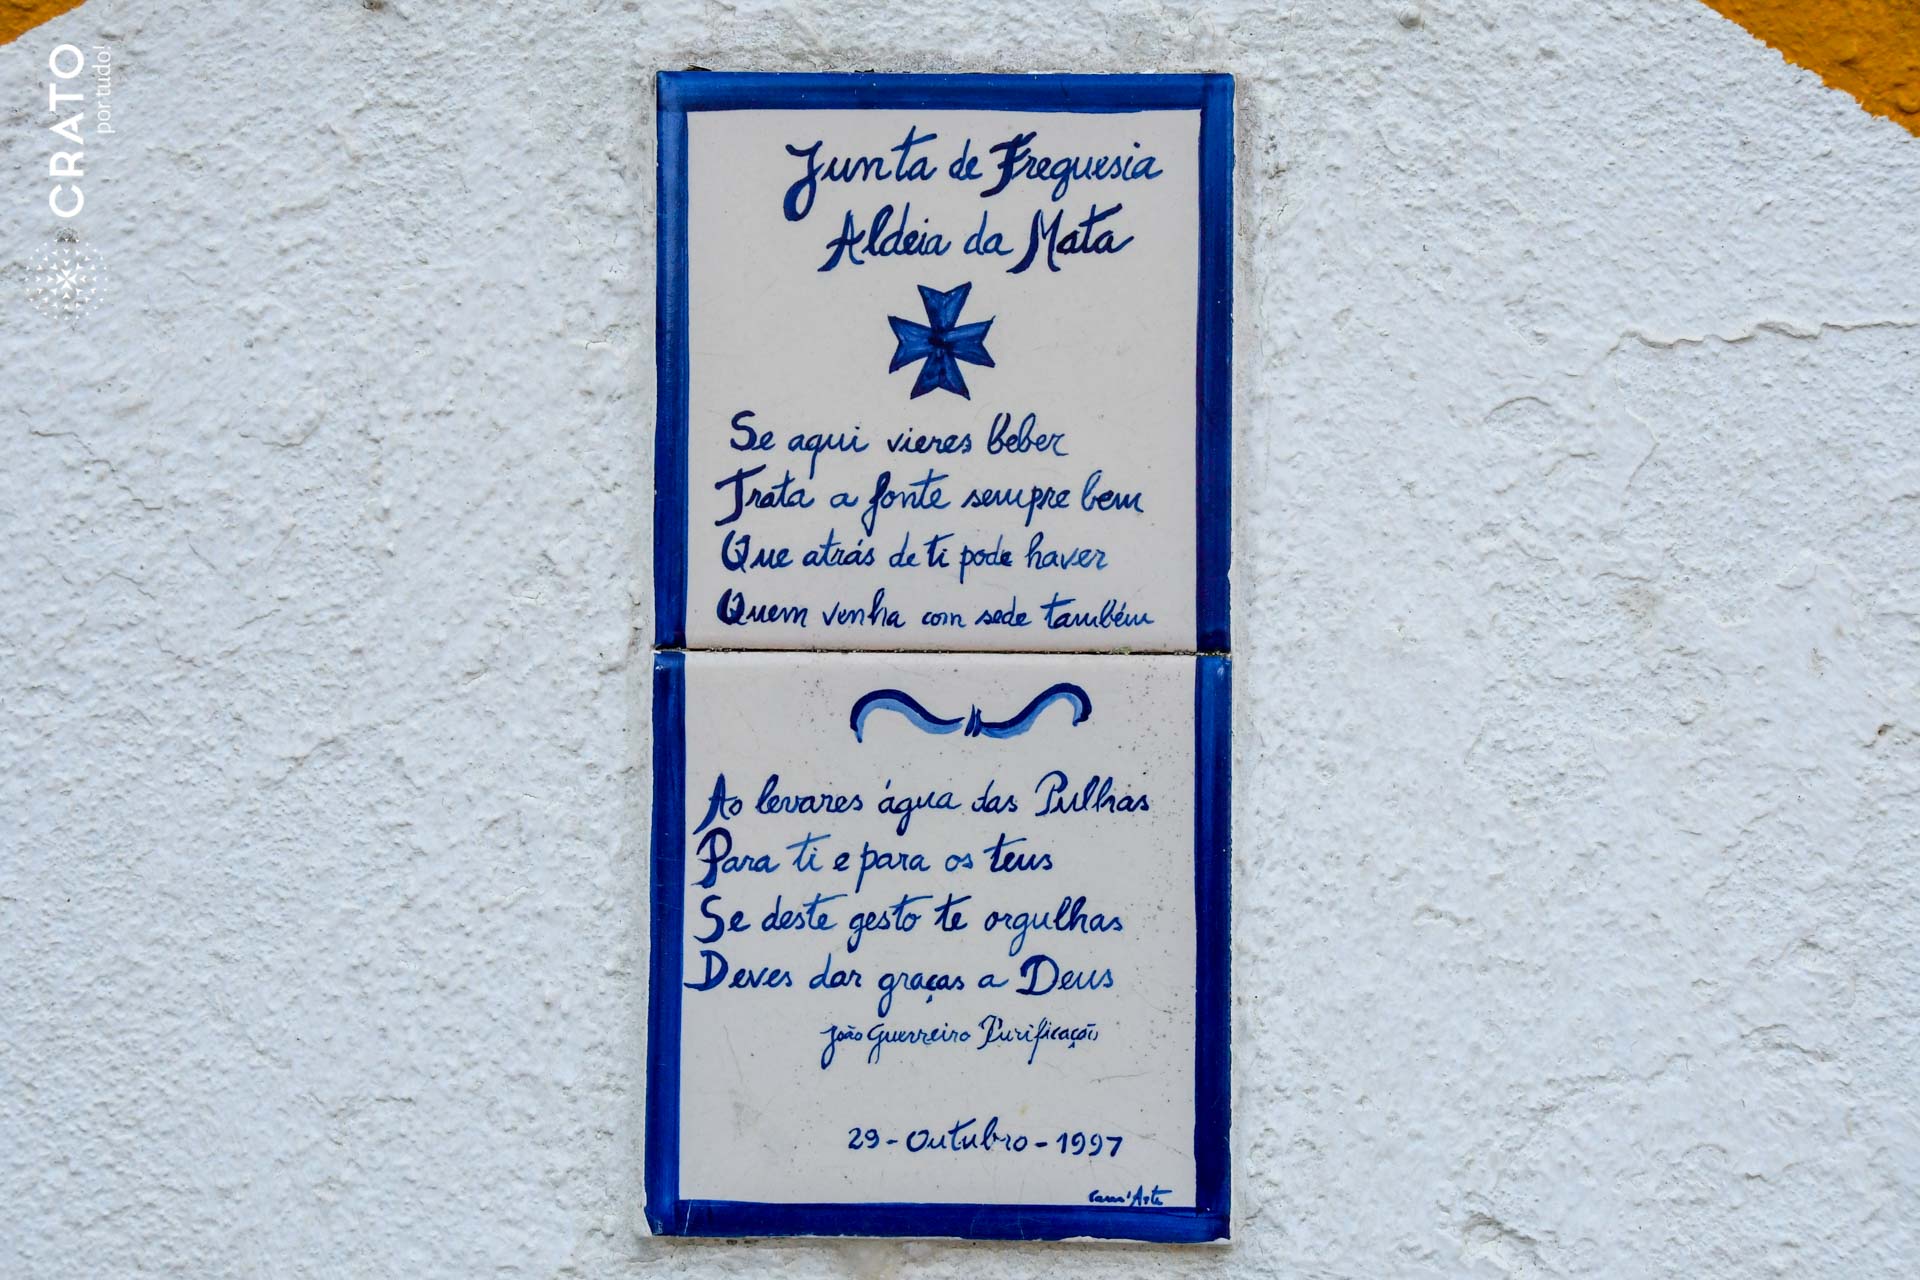 CRATO
por tudo!
Junta de Freguesia
Aldeia da Mata
Se aqui vieres beber
Trata a fonte sempre bem
Que atrás de ti pode haver
Quem venha com sede também
Ao levares água das Pulhas
Para ti e para os teus
Se deste gesto te orgulhas
Deves dar graças a Deus
João Guerreiro Purificação
29-Outubro-1997